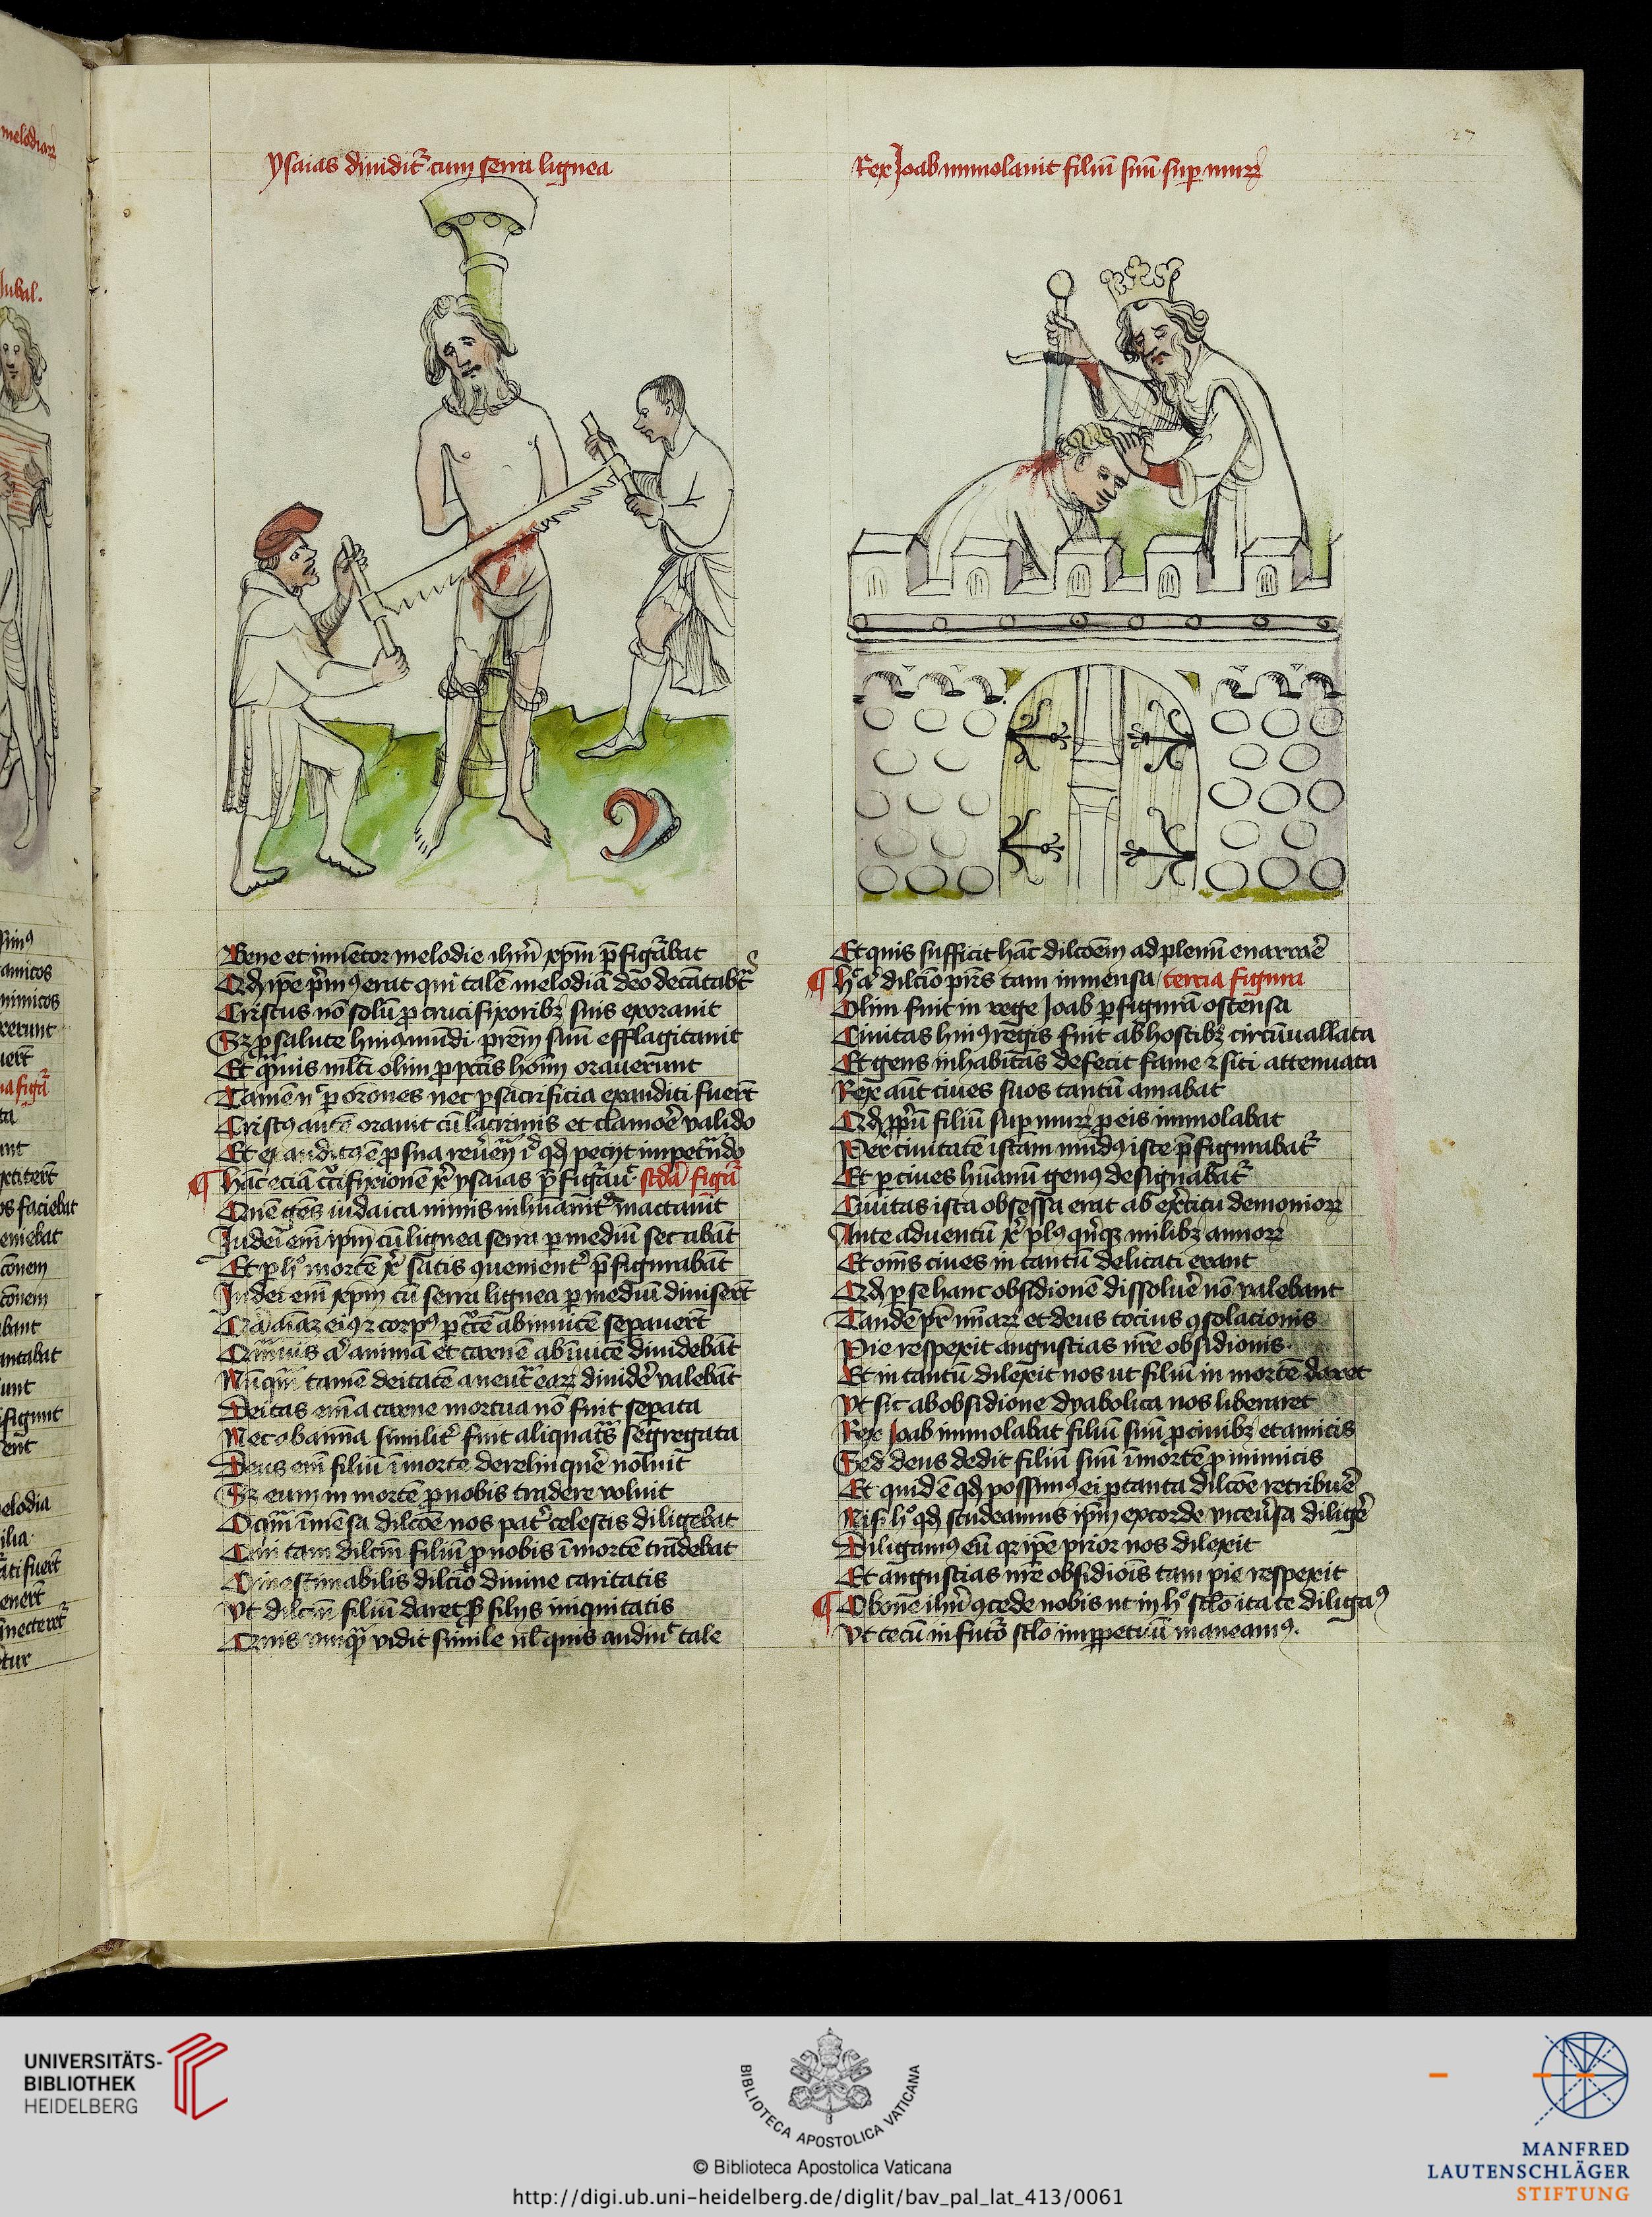 ysaias diuidit᷑ cum serra lignea
Bene et inuētor melodie ihm̄ xp̄m p̄figᷓbat
Qd̛ ip̄e p̄mꝰ erat qui talē melodiā deo decātabᷓt
Cristus nō solū ꝓ crucifixoribꝫ suis exorauit
Sꝫ ꝓ salute huiꝰ mūdi prēm suū efflagitauit
Et qᷓmuis ml̄ti olim ꝓ pctis hoīm orauerūnt
Tamen nᶜ ꝑ or̄ones nec ꝑ sacrificia exauditi fuer̄t
Cristꝰ autē orauit cū lacrimis et clamoē valido
Et exauditꝰ ē ꝓ sua reuēn̄ iᵈ qd̛ peciit impetᷓndo
¶ Hāc eciā cᷓcifixionē xᷓ ysaias p̄figᷓuᶜ scd̄a figᷓ
Quē gēs iudaica nimis inhūanit᷑ mactauit
Iudei em̄ ip̄m cū lignea serra ꝑ mediū secabāt
Et ꝑ hᵒ mortē xᷓ satis ꝯuenient᷑ p̄figurabāt
Iudei em̄ xp̄m cū serra lignea ꝑ mediū diuiser̄t
eiꝰ ꞇ corpꝰ ꝑ abinuicē sepauer̄t
animā et carnē abīuicē diuidebāt
Nūqᷓm tamē deitatē a neutᷓ eaꝝ diuidē valebāt
Deitas em̄ a carne mortua nō fuit sepata
Nec ab anīma similit᷑ fuit aliquatᷓs segregata
Deus em̄ filiū ī morte derelinquē noluīt
Sꝫ eum in mortē ꝓ nobis tradere voluit
O qᷓm īmēsa dilcōe nos patᷓ celestis diligebat
tam dilcm̄ filiū ꝓ nobis ī mortē tradebat
O inestimabilis dilcio diuine caritatis
Vt dilcm̄ filiū daret ꝓ filijs iniquitatis
Quis vnqᷓ vidit simile ul̄ quis audiuᶜ tale
Rex Joab immolauit filiū suū sup muꝝ
27
Et quis sufficit hāc dilcōem ad plenū enarraē
¶ Hᶜ aᷓ dilcio prīs tam inmensa / tercia figura
Olim fuit in rege Joab ꝑ figurā ostensa
Ciuitas huiꝰ regis fuit ab hostibꝫ circūuallata
Et gens inhabitās defecit fame ꞇ siti attenuata
Rex aūt ciues suos tantū amabat
Qd̛ pp̄ū filiū sup muꝝ ꝓ eis immolabat
Per ciuitatē istam mūdꝰ iste p̄figurabat᷑
Et ꝑ ciues hūanū genꝰ designabat᷑
Ciuitas ista obsessa erat ab exᷓcitu demonioꝝ
Ante aduentū xᷓ plꝰ qᷓ quīqꝫ milibꝫ annoꝝ
Et om̄s ciues in tantū delicati erant
Qd̛ ꝑ se hanc obsidionē dissoluē nō valebant
Tandē pr̄ miāꝝ et deus tocius ꝯsolacionis
Pie respexit angustias nr̄e obsidionis
Et in tantū dilexit nos ut filiū in mortē daret
Vt sic ab obsidione dyabolica nos liberaret
Rex Joab immolabat filiū suū ꝓ ciuibꝫ et amicis
Sed deus dedit filiū suū ī mortē ꝓ inimicis
Et quid ē qd̛ possimꝰ ei ꝓ tanta dilcōe retribuē
Nisi hᵒ qd̛ studeamus ip̄m ex corde viceuᷓsa diligē
Diligamꝰ eū qꝛ ip̄e prior nos dilexit
Et angustias nr̄e obsidiois̄ tam pie respexit
¶ O bone ihū ꝯcede nobis ut in hᵒ sclo ita te diligaꝰ
Vt tecū in futᷓo sclo imꝑpetuū maneamꝰ.
UNIVERSITÄTS-
BIBLIOTHEK
HEIDELBERG
BIBLIOTECA APOSTOLICA VATICANA
© Biblioteca Apostolica Vaticana
http://digi.ub.uni-heidelberg.de/diglit/bav_pal_lat_413/0061
MANFRED
LAUTENSCHLÄGER
STIFTUNG